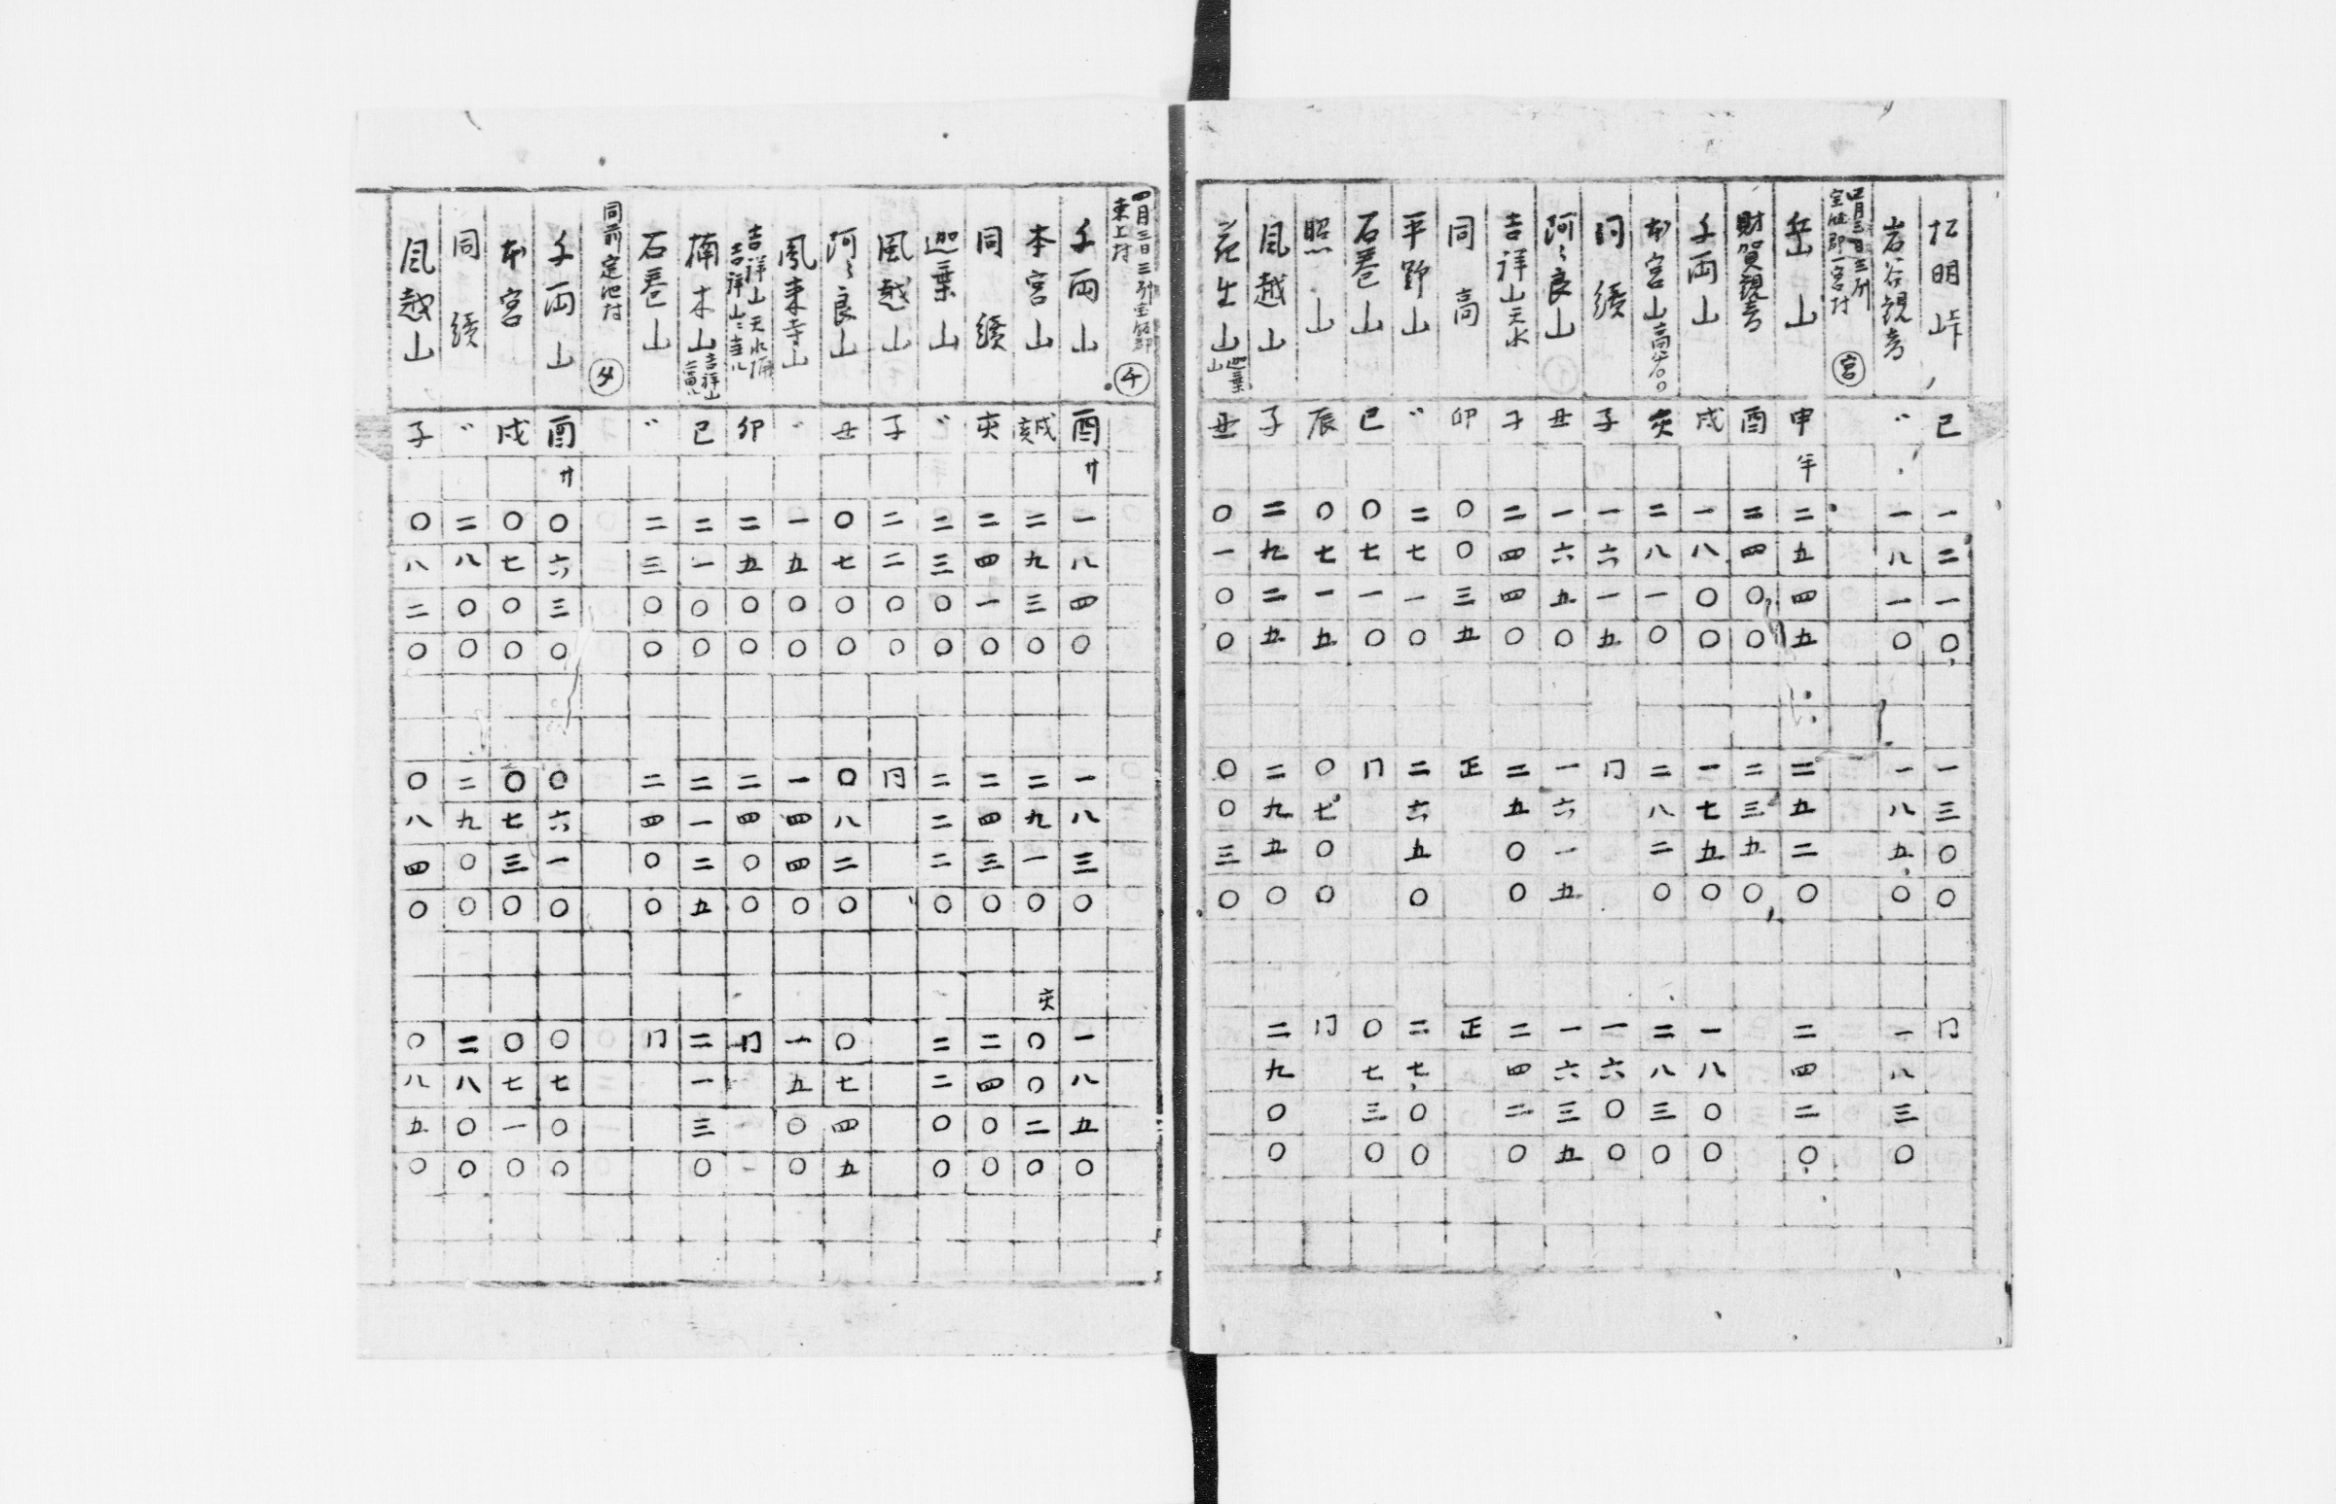 打明峠 巳 一二一〇 一三〇〇 冂
岩谷観音 〃 一八一〇 一八五〇 一八三〇
四月三日三所
宝飯郡一宮村 宮
岳山 申 午 二五四五 二五二〇 二四二〇
財賀観音 酉 二四〇〇 二三五〇
千両山 戌 一八〇〇 一七五〇 一八〇〇
本宮山 亥 二八一〇 二八二〇 二八三〇
同続 子 一六一五 冂 一六〇〇
阿〻良山 丑 一六五〇 一六一五 一六三五
吉祥山天水 子 二四四〇 二五〇〇 二四二〇
同高 卯 〇〇三五 正 正
平野山 〃 二七一〇 二六五〇 二七〇〇
石巻山 巳 〇七一〇 冂 〇七三〇
照山 辰 〇七一五 〇七〇〇 冂
風越山 子 二九二五 二九五〇 二九〇〇
花生山 迦葉山 丑 〇一〇〇 〇〇三〇
四月三日三所宝飯郡
東上村 千
千両山 酉 廾 一八四〇 一八三〇 一八五〇
本宮山 戌亥 二九三〇 二九一〇 亥 〇〇二〇
同続 亥 二四一〇 二四三〇 二四〇〇
迦葉山 〃 二三〇〇 二二二〇 二二〇〇
風越山 子 二二〇〇 冂
阿〻良山 丑 〇七〇〇 〇八二〇 〇七四五
鳳来寺山 〃 一五〇〇 一四四〇 一五〇〇
吉祥山天水
吉祥山ニ当ル 卯 二五〇〇 二四〇〇 冂
楠木山 吉祥山 巳 二一〇〇 二一二五 二一三〇
石巻山 〃 二三〇〇 二四〇〇 冂
同前定池村
千両山 酉 廾 〇六三〇 〇六一〇 〇七〇〇
本宮 戌 〇七〇〇 〇七三〇 〇七一〇
同続 〃 二八〇〇 二九〇〇 二八〇〇
風越山 子 〇八二〇 〇八四〇 〇八五〇